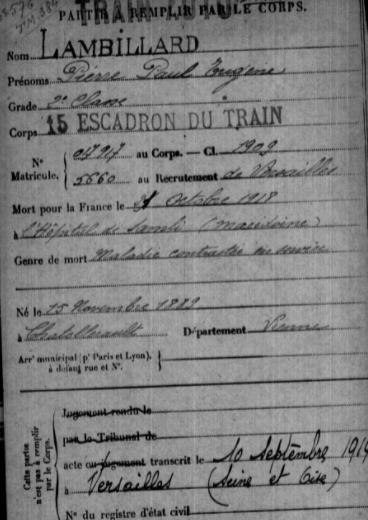 PARTIE À REMPLIR PAR LE CORPS.
Nom LAMBILLARD
Prénoms Pierre Paul Eugène
Grade 2e Classe
Corps 15 ESCADRON DU TRAIN
N° Matricule. 04917 au Corps. — Cl. 1909
5660 au Recrutement de Versailles
Mort pour la France le Octobre 1918
à l'Hôpital de (Macédoine)
Genre de mort Maladie contractée en service
Né le 15 Novembre 1889
à Chatellerault Département Vienne
Arrt municipal (pr Paris et Lyon),
à défaut rue et N°.
Cette partie
n'est pas à remplir
par le Corps.
Jugement rendu le
par le Tribunal de
acte ou jugement transcrit le 10 Septembre 1919
à Versailles (Seine et Oise)
N° du registre d'état civil